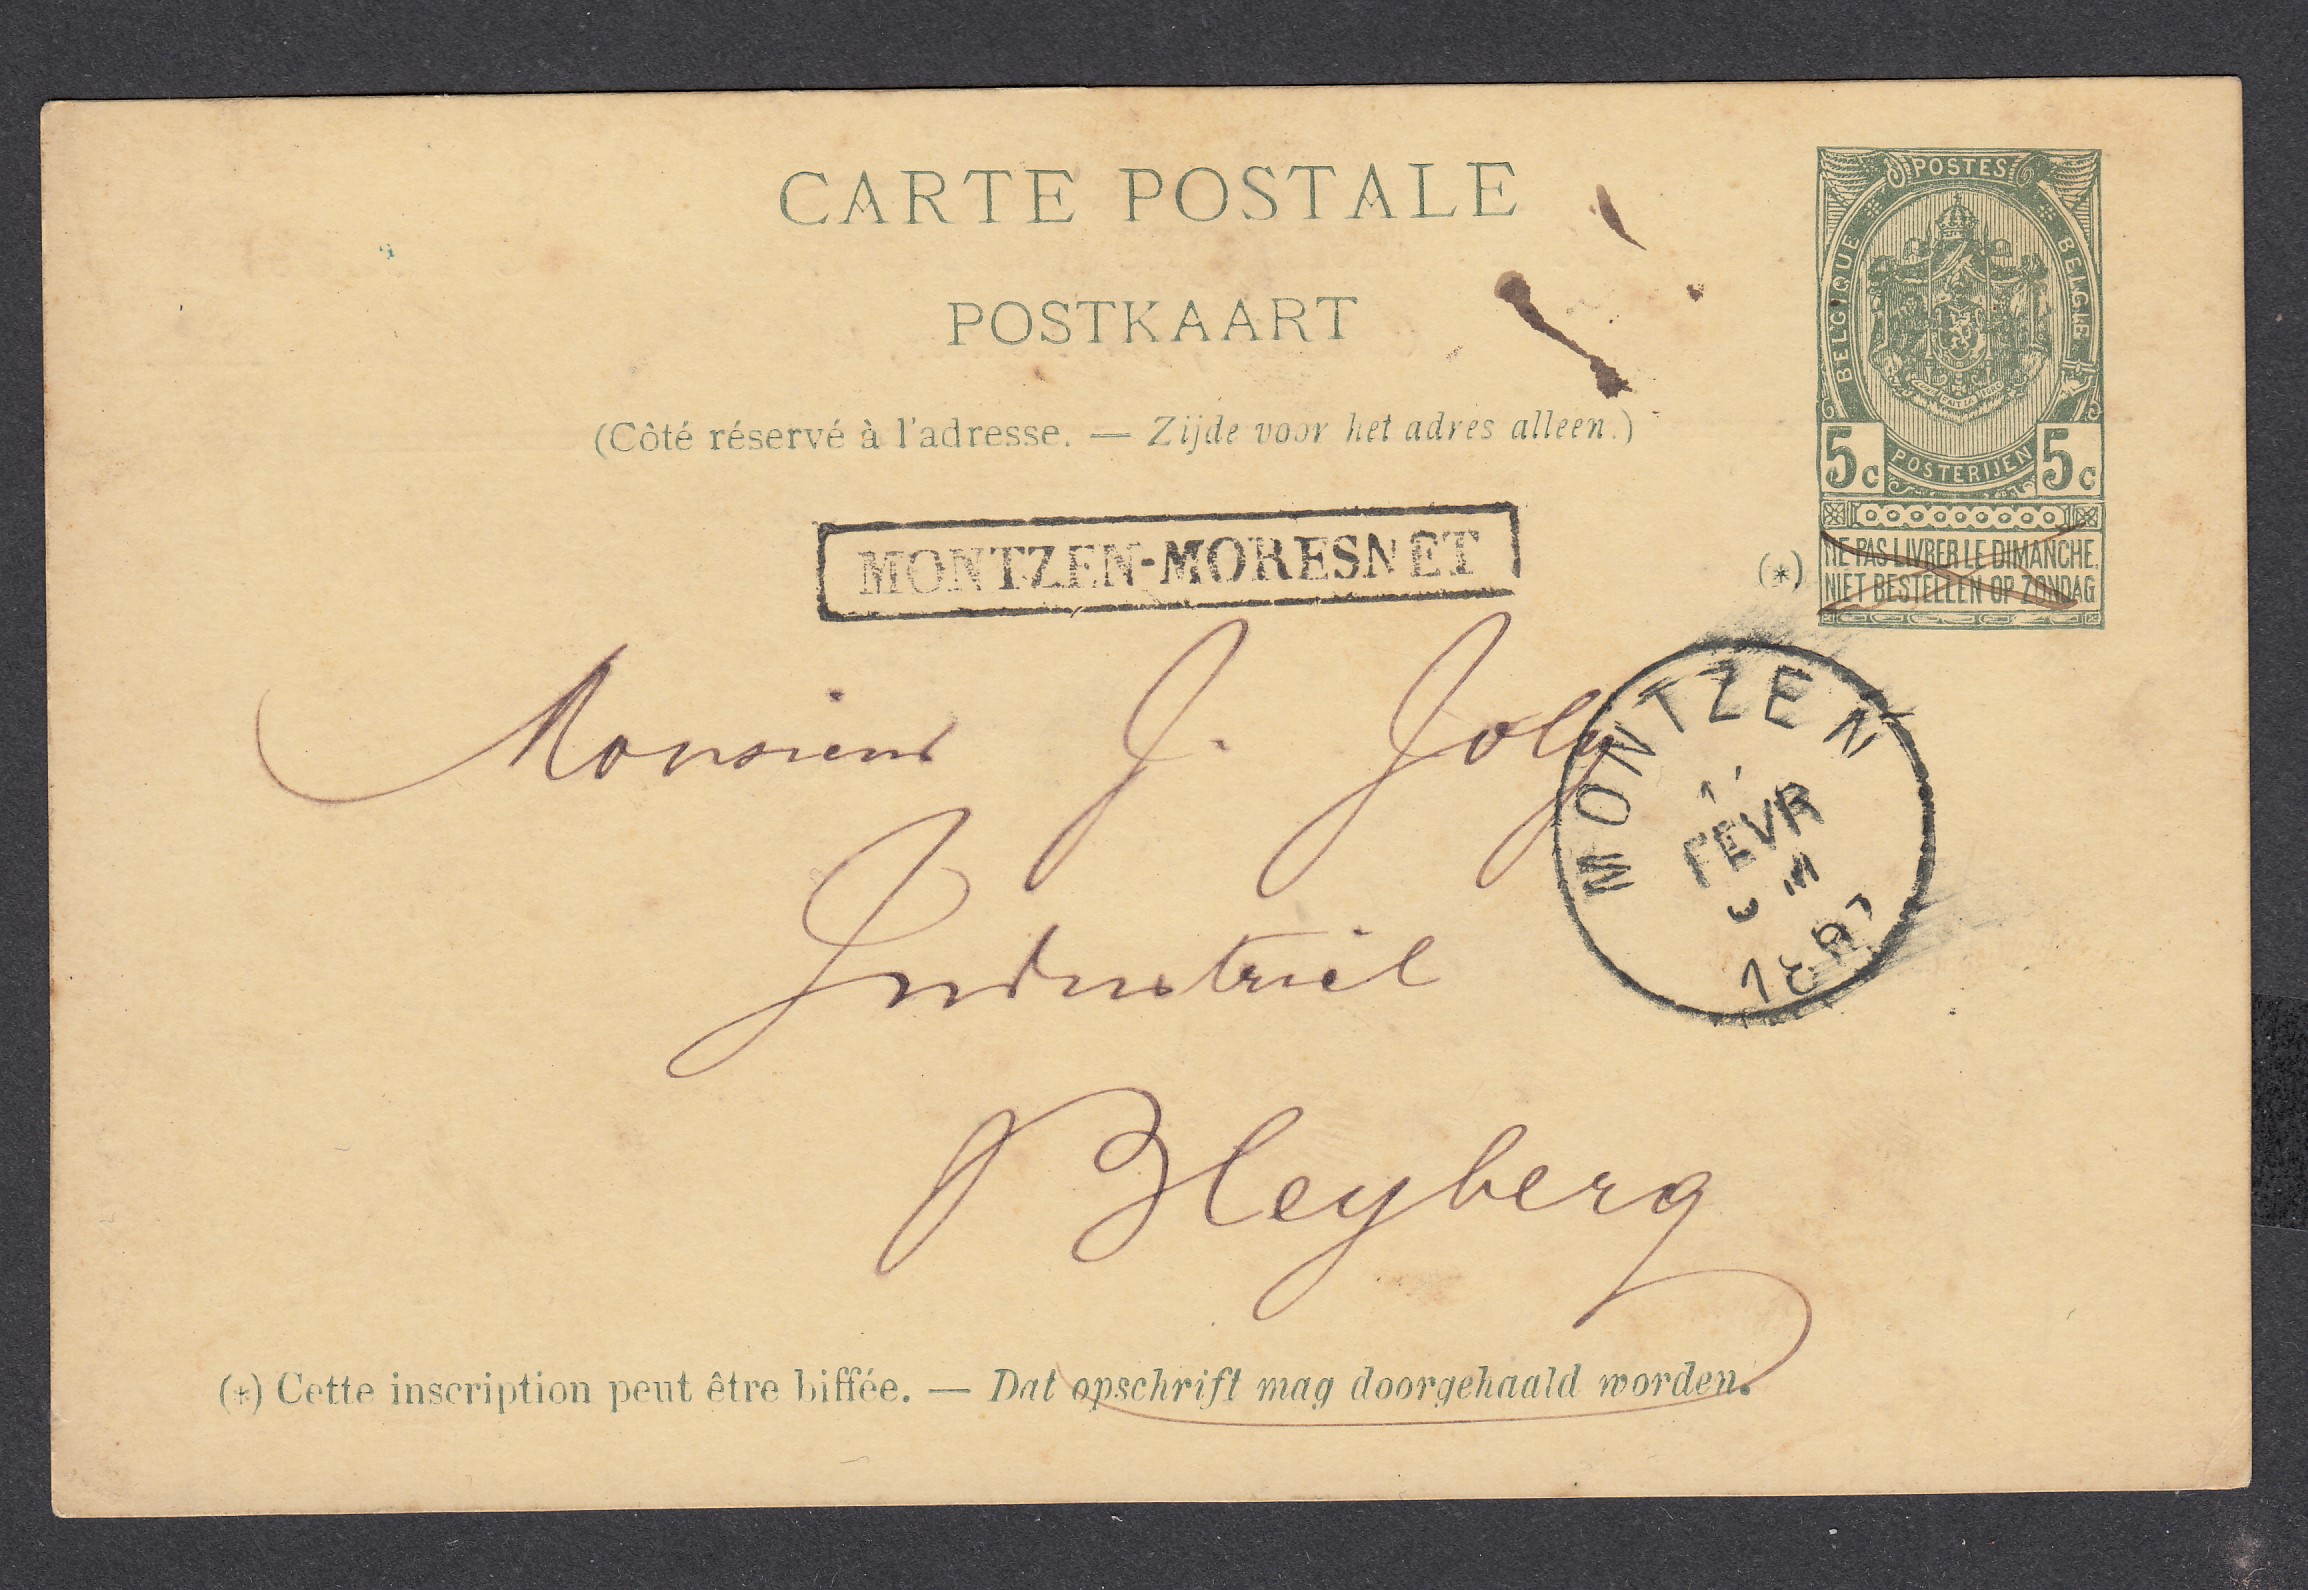 CARTE POSTALE
POSTKAART
(Côté réservé à l'adresse. — Zijde voor het adres alleen.)
POSTES
BELGIQUE
BELGIË
POSTERIJEN
5c 5c
(*) NE PAS LIVRER LE DIMANCHE.
NIET BESTELLEN OP ZONDAG
MONTZEN-MORESNET
Monsieur J. Joly
MONTZEN
FEVR
Industriel
Bleyberg
(*) Cette inscription peut être biffée. — Dat opschrift mag doorgehaald worden.